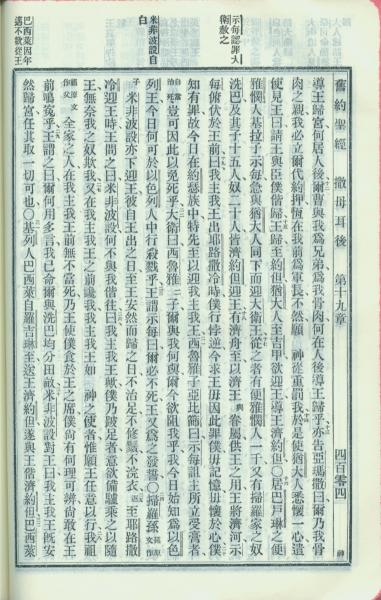 舊約聖經 撒母耳後 第十九章 四百零四 神
導王歸宮何居人後爾曹與我爲兄弟爲我骨肉何在人後導王歸乎亦告亞瑪撒曰爾乃我骨
肉之親我必立爾代約押恆在我前爲軍長不然願 神從重罰我於是使猶大人悉懷一心遣
使見王曰請王與臣僕偕歸王歸至約但猶大人至吉甲欲迎王導王濟約但〇居巴戶琳之便
示每認罪大
衛赦之
雅憫人基拉子示每急與猶大人同下而迎大衛王從之者有便雅憫人一千又有掃羅家之奴
洗巴及其子十五人奴二十人皆濟約但迎王有濟舟至以濟王與眷屬供王之用王將濟河示
每俯伏於王前曰我主我王出耶路撒冷時僕行悖逆今求王毋因此罪僕毋記憶毋懷於心僕
知有罪故今日在約瑟族中特先至以迎我主我王西魯雅子亞比篩曰示每詛主所立受膏者
自當治死豈可因此以免死乎大衛曰西魯雅二子爾與我何與爾今欲阻我乎我今日始知爲以色
米非波設自
白
列王今日何可於以色列人中行殺戮乎王謂示每曰爾必不死王又爲之發誓〇掃羅孫孫原文作
子米非波設亦下迎王彼自王出之日至王安然而歸之日不治足不修鬚不浣衣迨至耶路撒
冷迎王時王問之曰米非波設何不與我偕往曰我主我王歟僕乃跛足者意欲備驢乘之以隨
王無奈我之奴欺我又在我主我王之前讒我我主我王如 神之使者惟願王任意以行我祖
祖原文作父全家之人在我主我王前無不當死乃王使僕食於王之席僕尚有何理可辨尚敢在王
前鳴冤乎王謂之曰爾何用多言我已命爾與洗巴均分田畝米非波設對王曰我主我王既安
巴西萊因年
邁不就從王
然歸宮任其取一切可也〇基列人巴西萊自羅吉琳至送王濟約但遂與王偕濟約但巴西萊